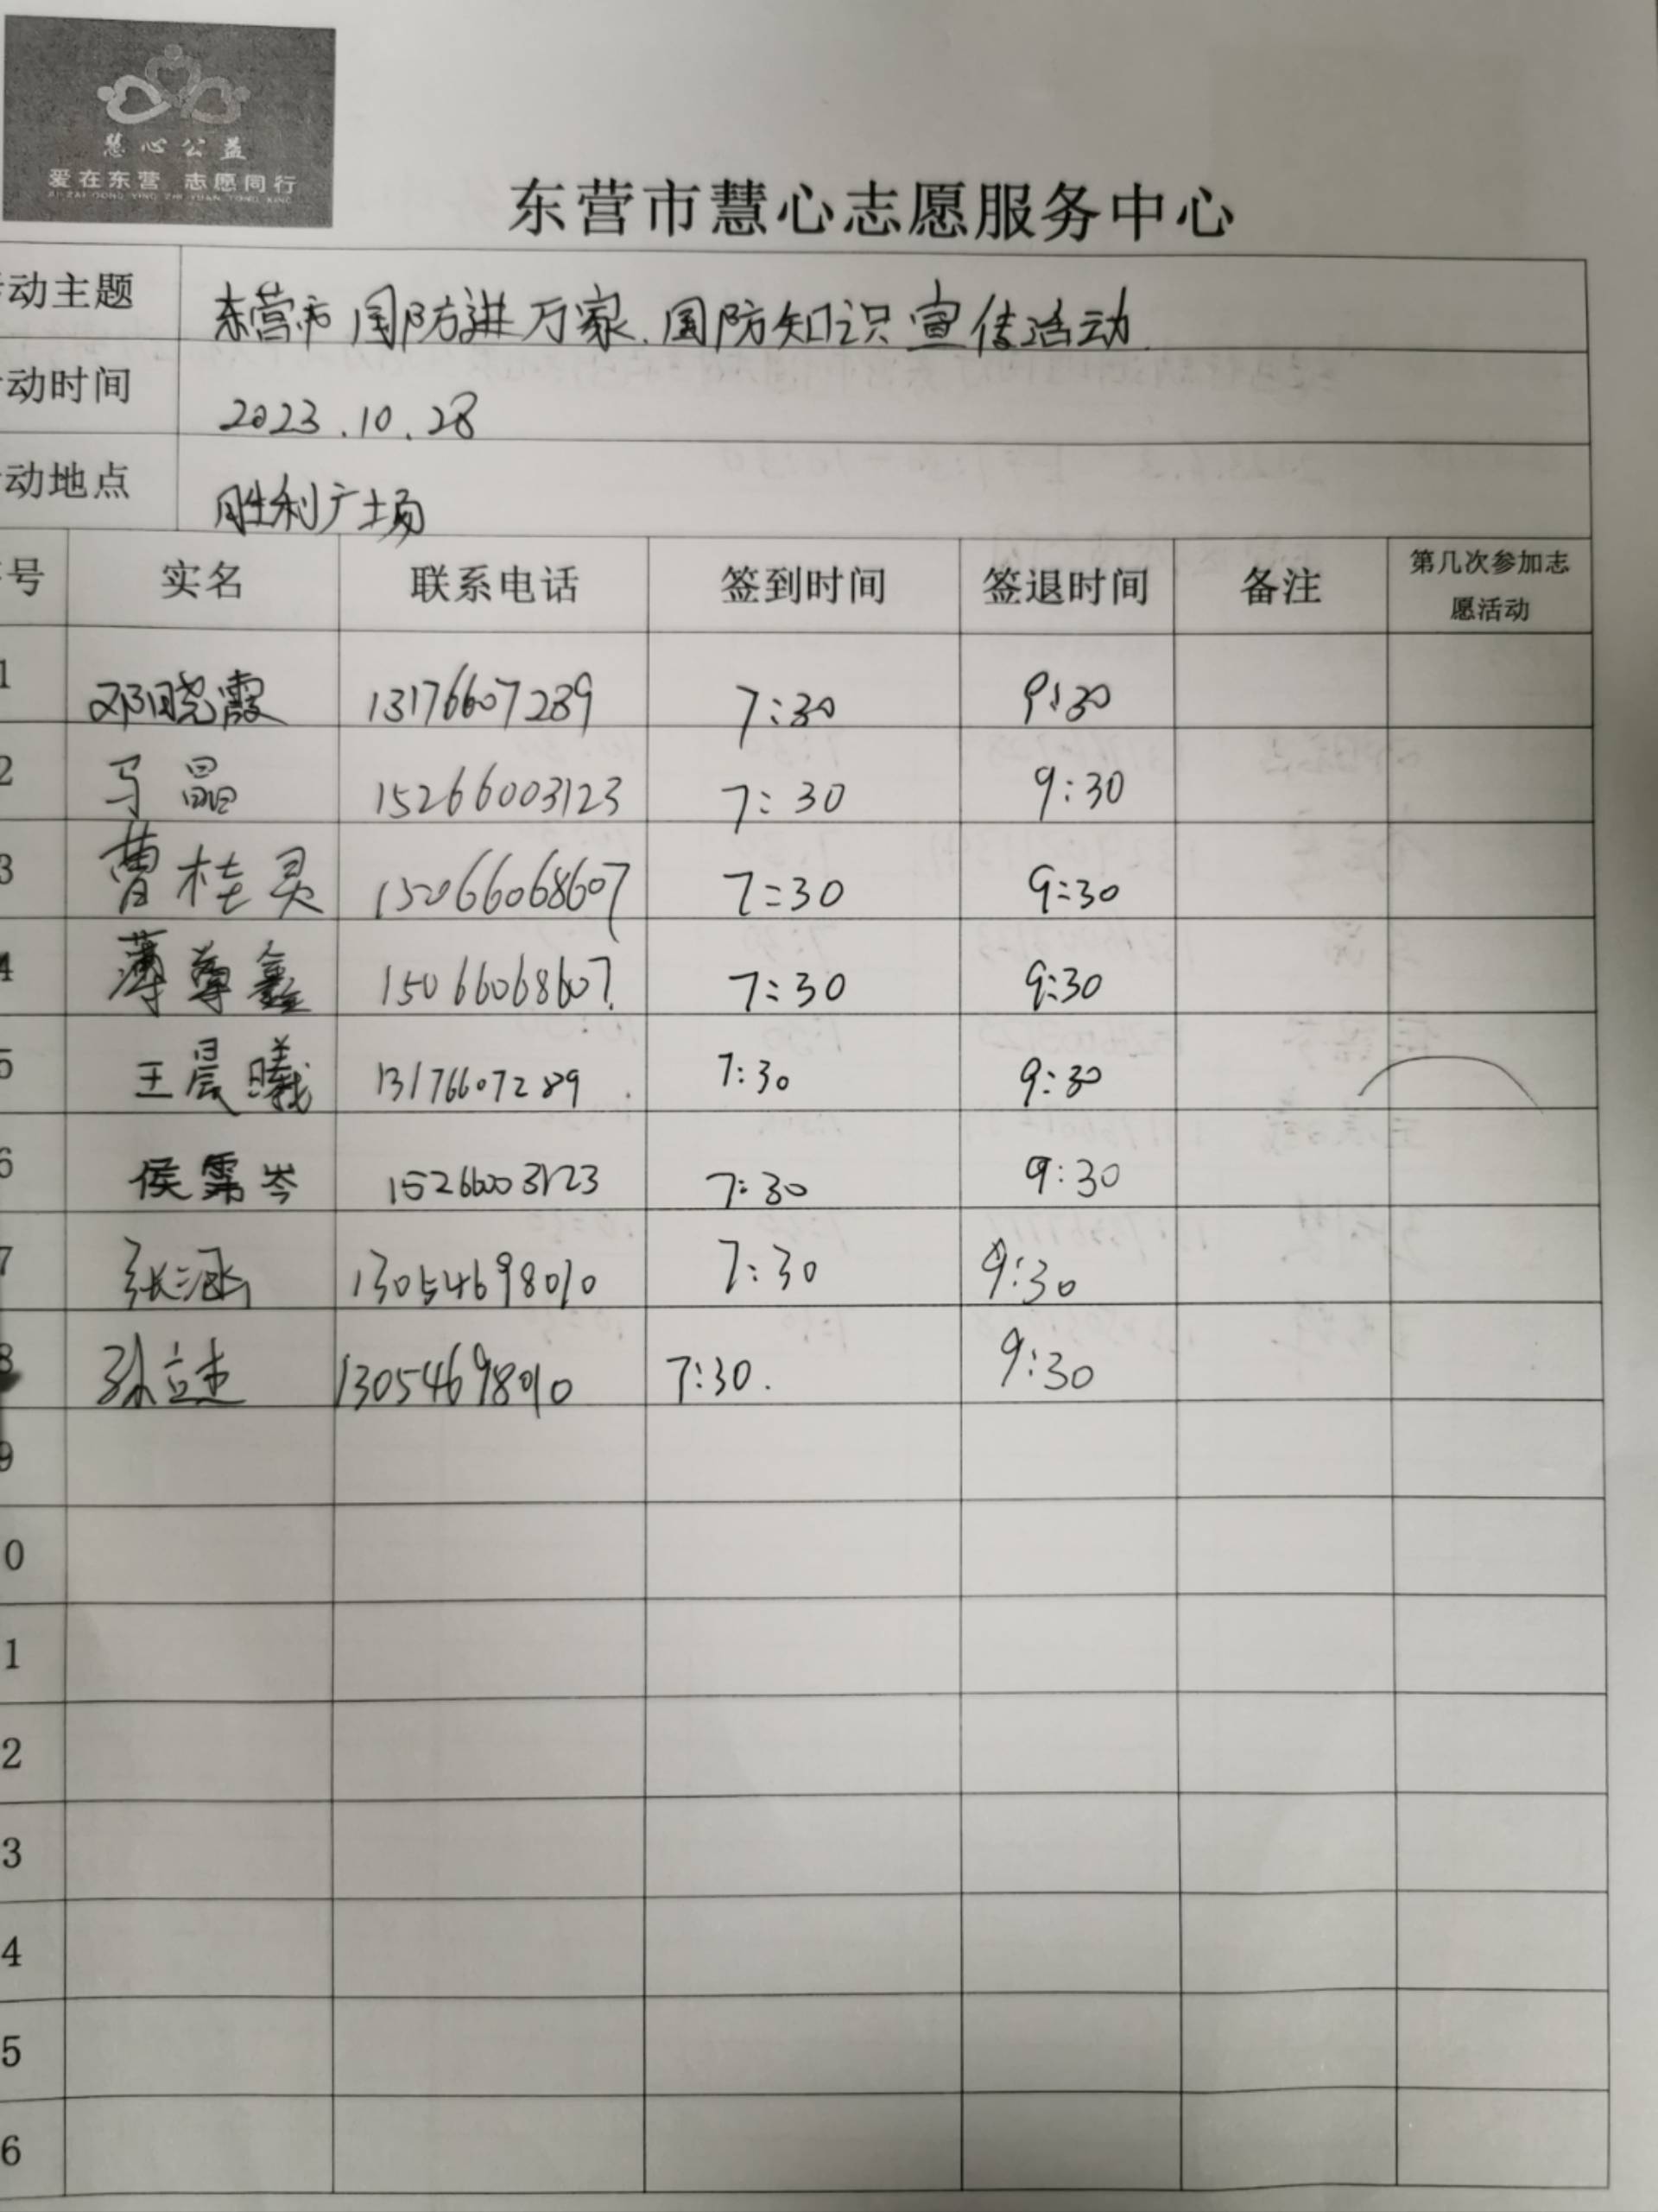 慧心公益
爱在东营 志愿同行
AI ZAI DONG YING ZHI YUAN TONG XING
东营市慧心志愿服务中心
动主题 东营市国防进万家.国防知识宣传活动.
动时间 2023.10.28
动地点 胜利广场
号 实名 联系电话 签到时间 签退时间 备注 第几次参加志
愿活动
1 邓晓霞 13176607289 7:30 9:30
2 马晶 15266003123 7:30 9:30
3 曹桂灵 15066068607 7:30 9:30
4 薄尊鑫 15066068607 7:30 9:30
5 王晨曦 13176607289 7:30 9:30
6 侯霈岑 15266003123 7:30 9:30
7 张涵 13054698010 7:30 9:30
8 孙立志 13054698010 7:30. 9:30
9
0
1
2
3
4
5
6